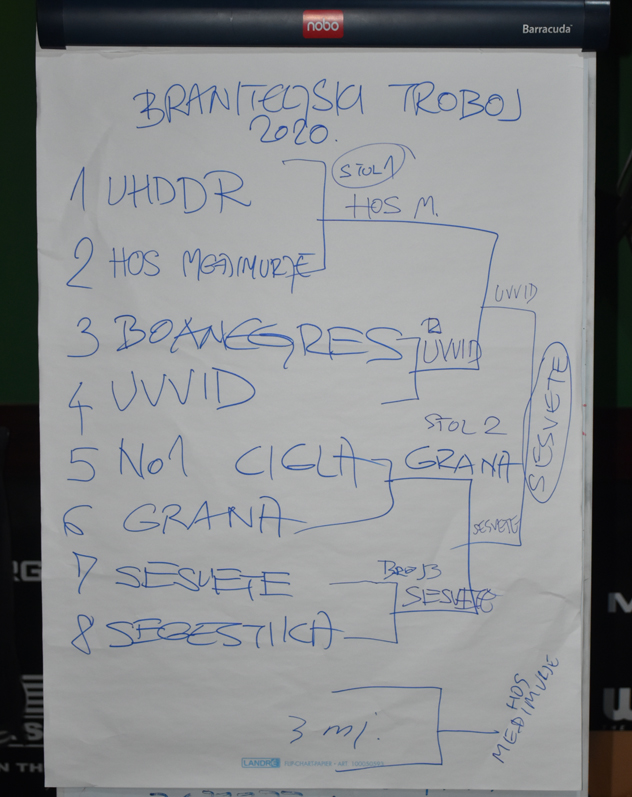 nobo
Barracuda
BRANITELJSKI TROBOJ
2020.
STOL 1
1 UHDDR
HOS M.
2 HOS MEĐIMURJE
UVVID
3 BOANEGRES
UVVID
4 UVVID
SESVETE
STOL 2
5 No1 CIGLA
GRANA
6 GRANA
SESVETE
7 SESVETE
BROJ 3
SESVETE
8 SEGESTIKA
HOS
MEĐIMURJE
3 mj.
LANDRÉ